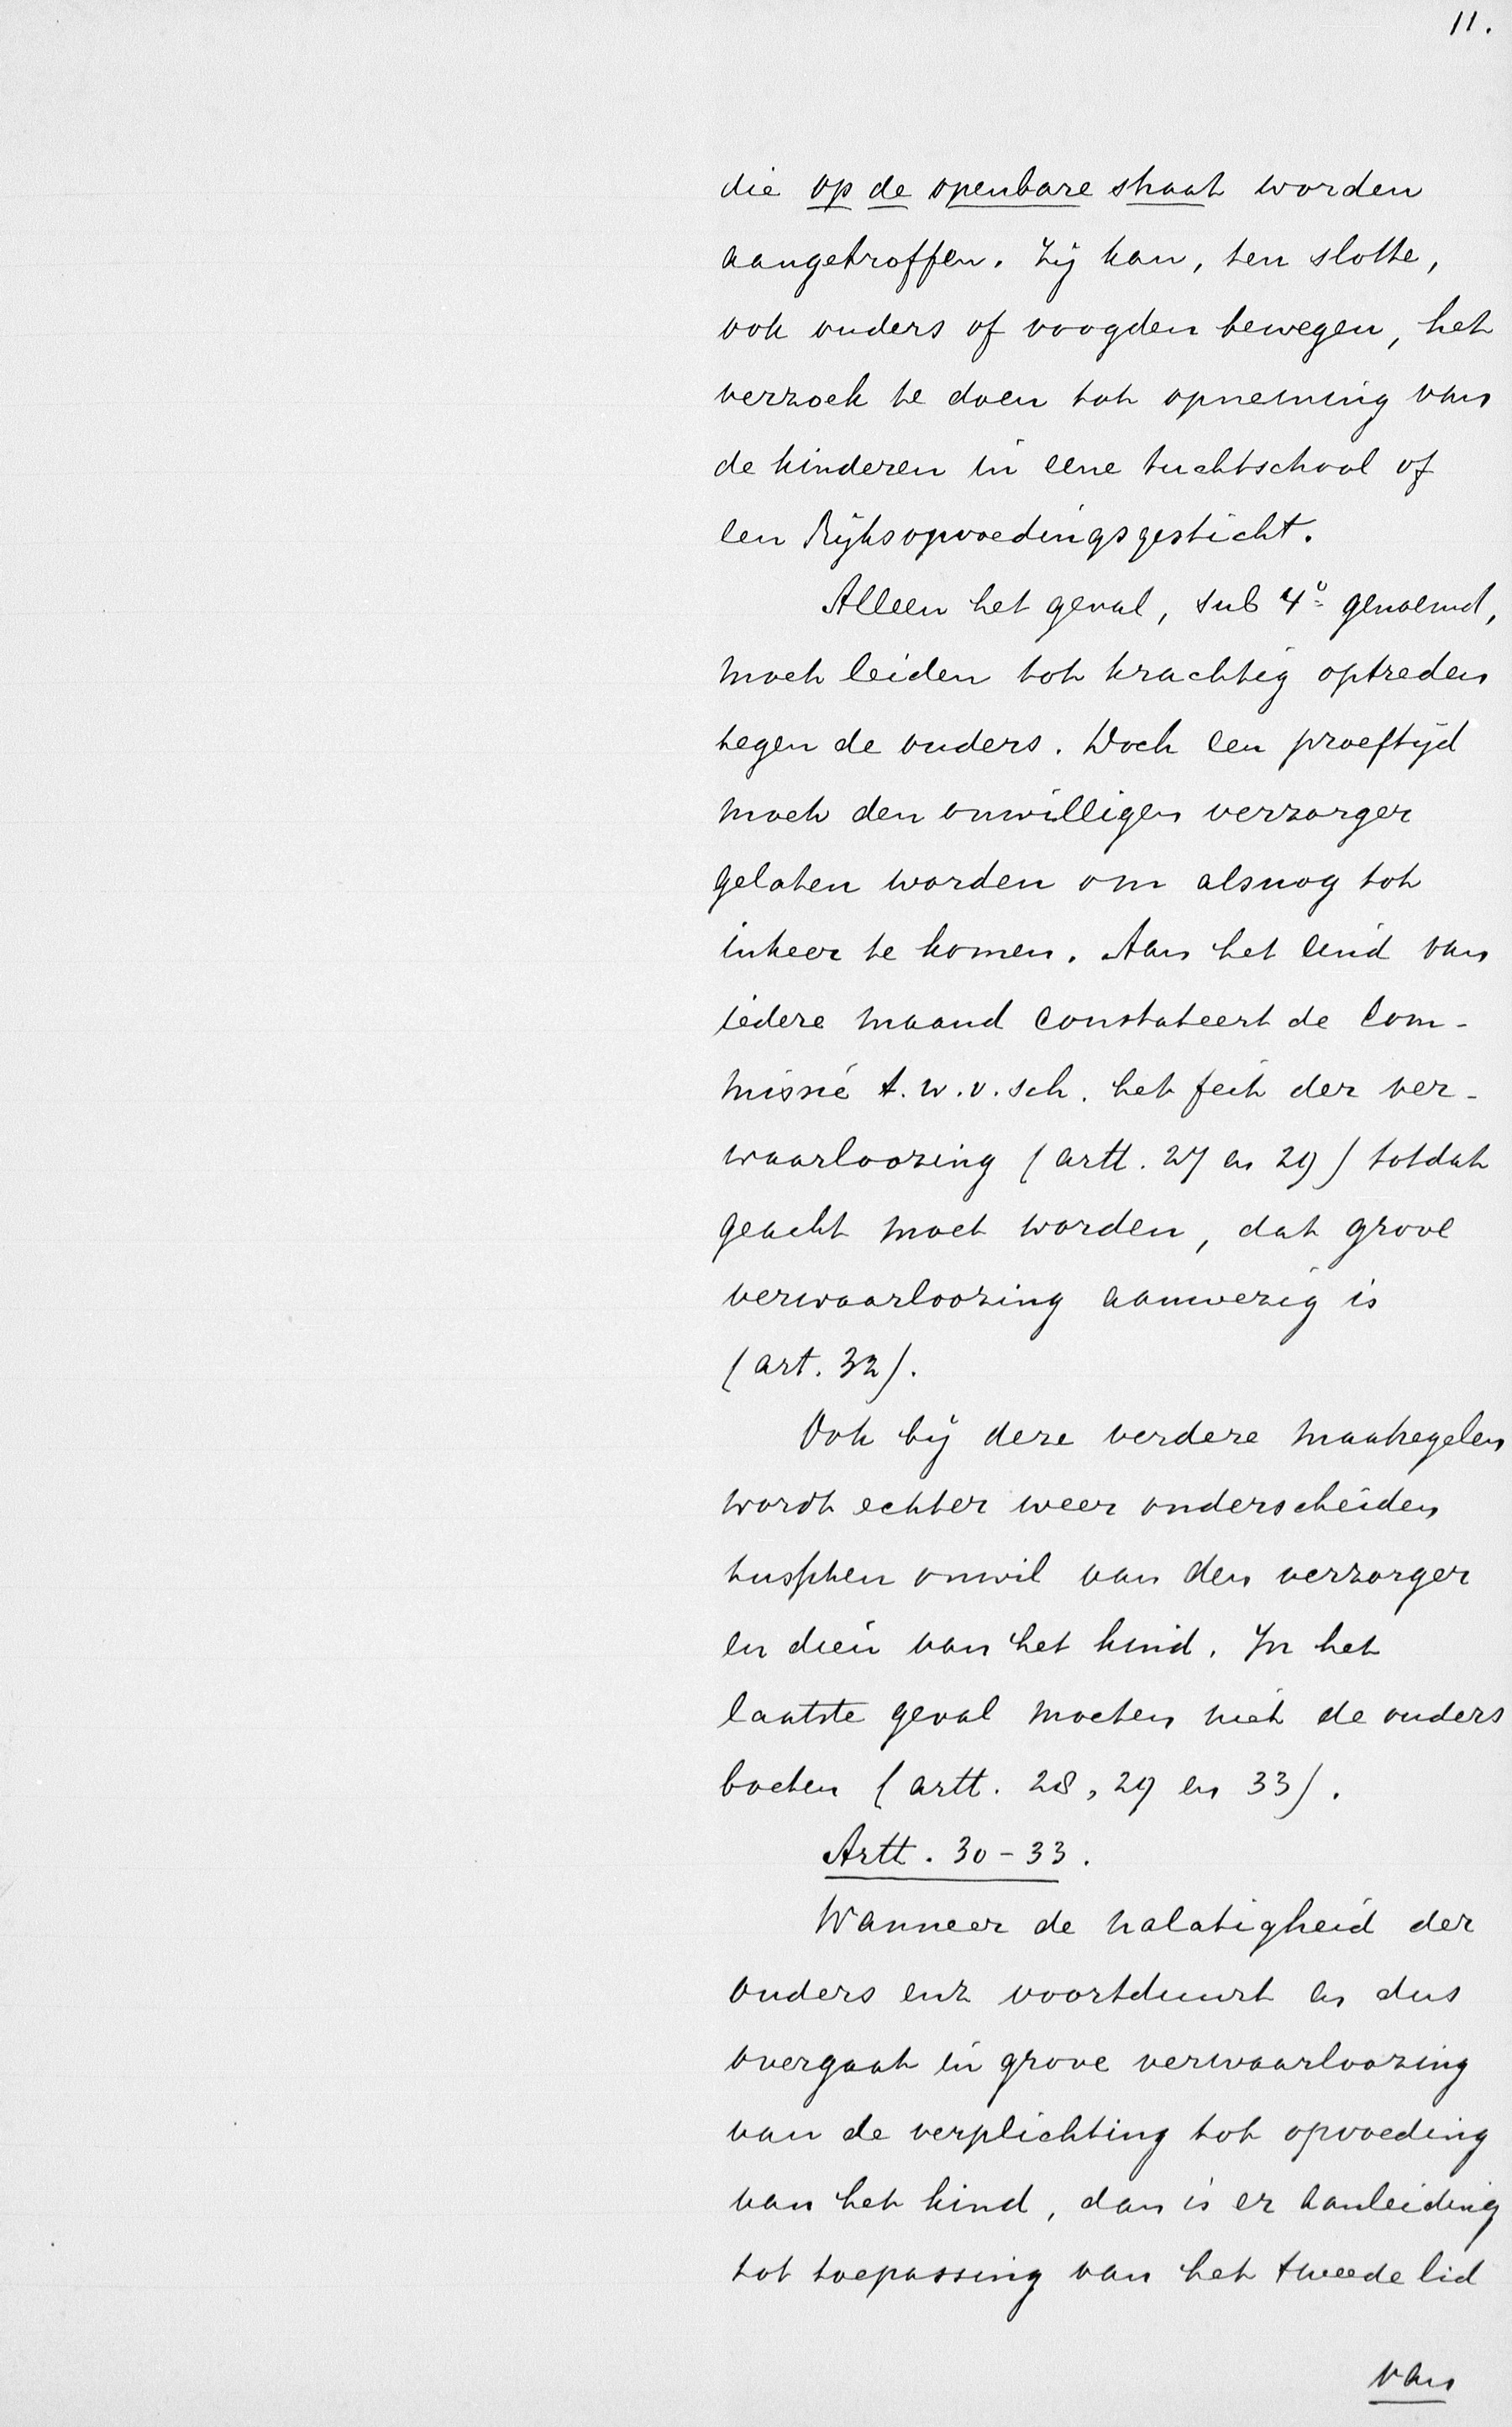 11.
die op de openbare straat worden
aangetroffen. Zij kan, ten slotte,
ook ouders of voogden bewegen, het
verzoek te doen tot opneming van
de kinderen in eene tuchtschool of
een Rijksopvoedingsgesticht.
Alleen het geval, sub 4º genoemd,
moet leiden tot krachtig optreden
tegen de ouders. Doch een proeftijd
moet den onwilligen verzorger
gelaten worden om alsnog tot
inkeer te komen. Aan het eind van
iedere maand constateert de Com-
missie t. w. v. sch. het feit der ver-
waarloozing (artt. 27 en 29) totdat
geacht moet worden, dat grove
verwaarloozing aanwezig is
(art. 32).
Ook bij deze verdere maatregelen
wordt echter weer onderscheiden
tusschen onwil van den verzorger
en dien van het kind. In het
laatste geval moeten niet de ouders
boeten (artt. 28, 29 en 33).
Artt. 30-33.
Wanneer de nalatigheid der
ouders enz voortduurt en dus
overgaat in grove verwaarloozing
van de verplichting tot opvoeding
van het kind, dan is er aanleiding
tot toepassing van het tweede lid
van